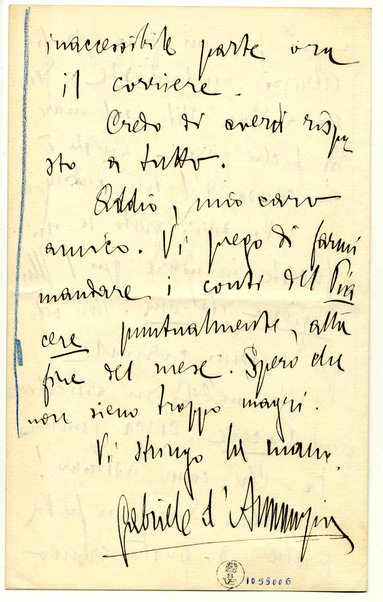 inaccessibile parte ora
il corriere.
Credo di averti rispo
sto a tutto.
Addio, mio caro
amico. Vi prego di farmi
mandare i conti del Pia
cere puntualmente, alla
fine del mese. Spero che
non sieno troppo magri.
Vi stringo la mano.
Gabriele d'Annunzio
1055006